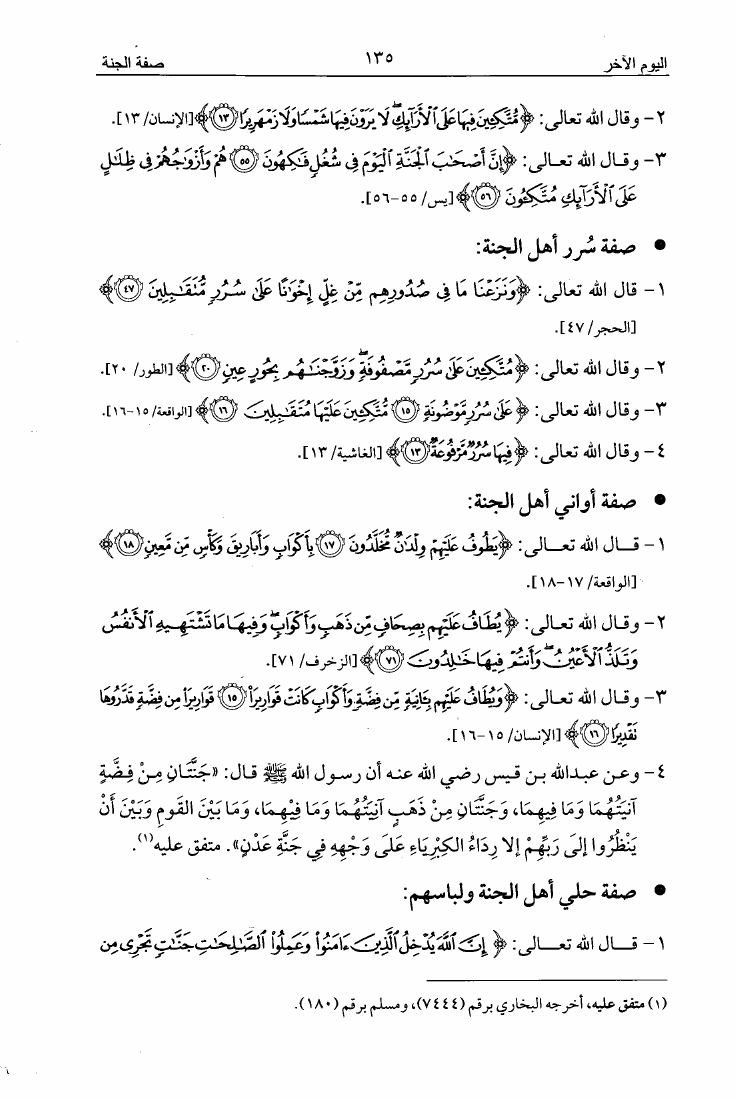 اليوم الآخر ١٣٥ صفة الجنة
٢- وقال الله تعالى: ﴿مُّتَّكِـِٔينَ فِيهَا عَلَى ٱلْأَرَآئِكِ ۖ لَا يَرَوْنَ فِيهَا شَمْسًا وَلَا زَمْهَرِيرًا ١٣﴾ [الإنسان/ ١٣].
٣- وقال الله تعالى: ﴿إِنَّ أَصْحَٰبَ ٱلْجَنَّةِ ٱلْيَوْمَ فِى شُغُلٍ فَٰكِهُونَ ٥٥ هُمْ وَأَزْوَٰجُهُمْ فِى ظِلَٰلٍ
عَلَى ٱلْأَرَآئِكِ مُتَّكِـُٔونَ ٥٦﴾ [يس/ ٥٥-٥٦].
● صفة سُرر أهل الجنة:
١- قال الله تعالى: ﴿وَنَزَعْنَا مَا فِى صُدُورِهِم مِّنْ غِلٍّ إِخْوَٰنًا عَلَىٰ سُرُرٍ مُّتَقَٰبِلِينَ ٤٧﴾
[الحجر/ ٤٧].
٢- وقال الله تعالى: ﴿مُتَّكِـِٔينَ عَلَىٰ سُرُرٍ مَّصْفُوفَةٍ ۖ وَزَوَّجْنَٰهُم بِحُورٍ عِينٍ ٢٠﴾ [الطور/ ٢٠].
٣- وقال الله تعالى: ﴿عَلَىٰ سُرُرٍ مَّوْضُونَةٍ ١٥ مُّتَّكِـِٔينَ عَلَيْهَا مُتَقَٰبِلِينَ ١٦﴾ [الواقعة/ ١٥-١٦].
٤- وقال الله تعالى: ﴿فِيهَا سُرُرٌ مَّرْفُوعَةٌ ١٣﴾ [الغاشية/ ١٣].
● صفة أواني أهل الجنة:
١- قـــال الله تعـــالى: ﴿يَطُوفُ عَلَيْهِمْ وِلْدَٰنٌ مُّخَلَّدُونَ ١٧ بِأَكْوَابٍ وَأَبَارِيقَ وَكَأْسٍ مِّن مَّعِينٍ ١٨﴾
[الواقعة/ ١٧-١٨].
٢- وقال الله تعالى: ﴿يُطَافُ عَلَيْهِم بِصِحَافٍ مِّن ذَهَبٍ وَأَكْوَابٍ ۖ وَفِيهَا مَا تَشْتَهِيهِ ٱلْأَنفُسُ
وَتَلَذُّ ٱلْأَعْيُنُ ۖ وَأَنتُمْ فِيهَا خَٰلِدُونَ ٧١﴾ [الزخرف/ ٧١].
٣- وقال الله تعالى: ﴿وَيُطَافُ عَلَيْهِم بِـَٔانِيَةٍ مِّن فِضَّةٍ وَأَكْوَابٍ كَانَتْ قَوَارِيرَا۠ ١٥ قَوَارِيرَا۟ مِن فِضَّةٍ قَدَّرُوهَا
تَقْدِيرًا ١٦﴾ [الإنسان/ ١٥-١٦].
٤- وعن عبدالله بن قيس رضي الله عنه أن رسول الله ﷺ قال: «جَنَّتَانِ مِنْ فِضَّةٍ
آنِيَتُهُمَا وَمَا فِيهِمَا، وَجَنَّتَانِ مِنْ ذَهَبٍ آنِيَتُهُمَا وَمَا فِيْهِمَا، وَمَا بَيْنَ القَومِ وَبَيْنَ أَنْ
يَنْظُرُوا إلَى رَبِّهِمْ إلا رِدَاءُ الكِبْرِيَاءِ عَلَى وَجْهِهِ فِي جَنَّةِ عَدْنٍ». متفق عليه(١).
● صفة حلي أهل الجنة ولباسهم:
١- قـــال الله تعـــالى: ﴿إِنَّ ٱللَّهَ يُدْخِلُ ٱلَّذِينَ ءَامَنُوا۟ وَعَمِلُوا۟ ٱلصَّٰلِحَٰتِ جَنَّٰتٍ تَجْرِى مِن
(١) متفق عليه، أخرجه البخاري برقم (٧٤٤٤)، ومسلم برقم (١٨٠).